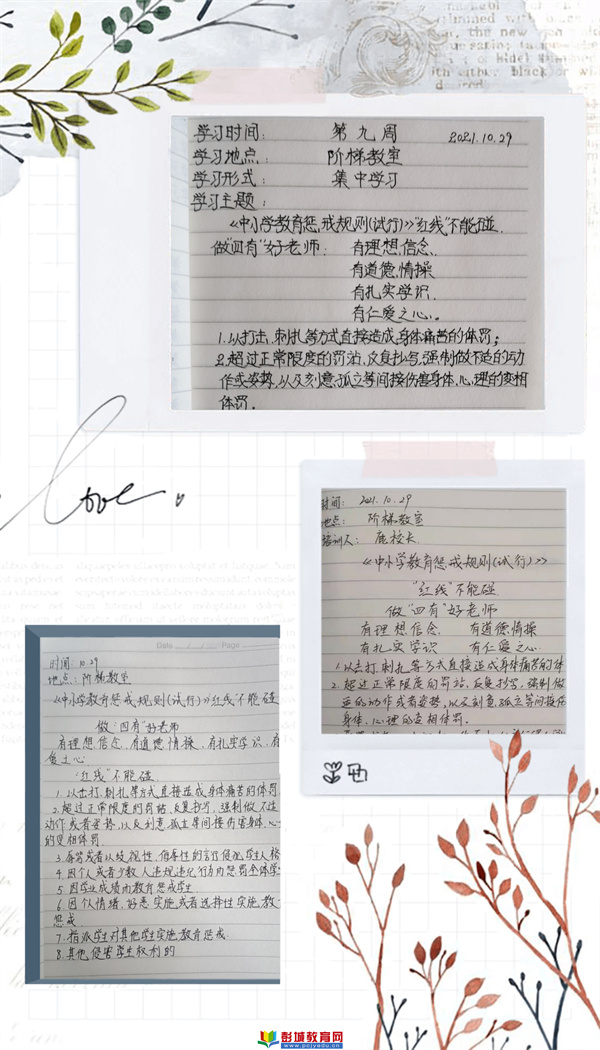 inned with b
the new
with either black or w
学习时间： 第九周 2021.10.29
学习地点： 阶梯教室
学习形式： 集中学习
学习主题：
《中小学教育惩戒规则(试行)》"红线"不能碰.
做"四有"好老师： 有理想,信念.
有道德,情操
有扎实学识.
有仁爱之心.
1.以打击,刺扎等方式直接造成身体痛苦的体罚;
2.超过正常限度的罚站,反复抄写,强制做不适的动
作或姿势,以及刻意孤立等间接伤害身体,心理的变相
体罚.
love
时间: 2021.10.29
地点: 阶梯教室
培训人: 鹿校长
《中小学教育惩戒规则(试行)》
"红线"不能碰
做"四有"好老师
有理想信念. 有道德情操
有扎实学识 有仁爱之心.
1.以击打.刺扎等方式直接造成身体痛苦的体
2.超过正常限度的罚站,反复抄写,强制做
适的动作或者姿势,以及刻意孤立等间接伤
身体,心理的变相体罚.
Date / / Page
时间: 10.29
地点: 阶梯教室
《中小学教育惩戒规则(试行)》红线不能碰
做"四有"好老师
有理想信念.有道德情操.有扎实学识.有
爱之心
"红线"不能碰
1.以击打,刺扎等方式直接造成身体痛苦的体罚
2.超过正常限度的罚站,反复抄写,强制做不适
动作或者姿势,以及刻意,孤立等间接伤害身体.心
的变相体罚.
3.辱骂或者以歧视性,侮辱性的言行侵犯学生人格
4.因个人或者少数人违规违纪行为而惩罚全体学
5.因学业成绩而教育惩戒学生
6.因个人情绪.好恶实施或者选择性实施教
惩戒
7.指派学生对其他学生实施教育惩戒
8.其他侵害学生权利的
彭城教育网
www.pcjyedu.cn